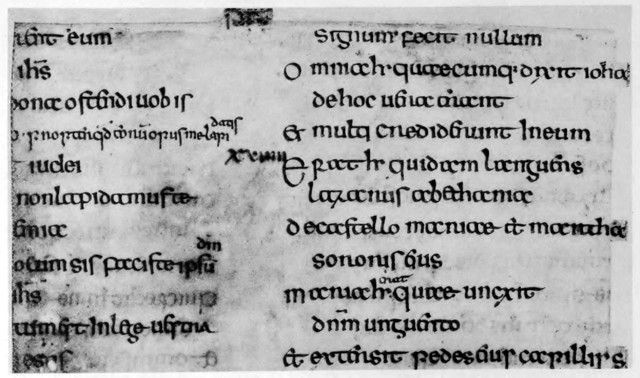 eum
ihs
bona ostendi uobis
opus me lapidatis
iudei
non lapidamus te
femia
cum sis facis te ipsu dm
ihs
in lege uestra
signum fecit nullum
omnia h quaecumq dixit ioha
de hoc uera erant
et multi crediderunt in eum
erat h quidam languens
lazarus a bethania
de castello mariae et martha
sororis eius
maria h erat quae unxit
dnm unguento
et extersit pedes eius capillis s